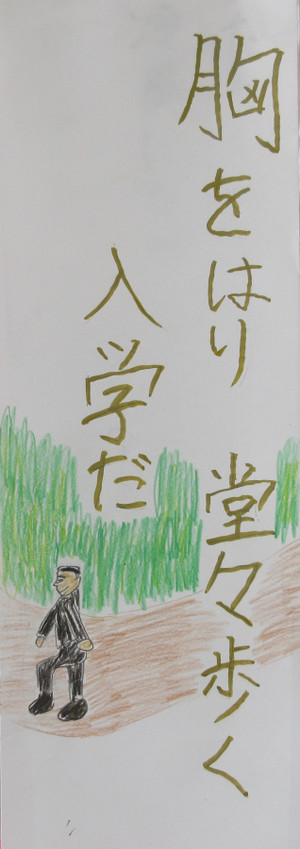 胸をはり 堂々歩く
入学だ